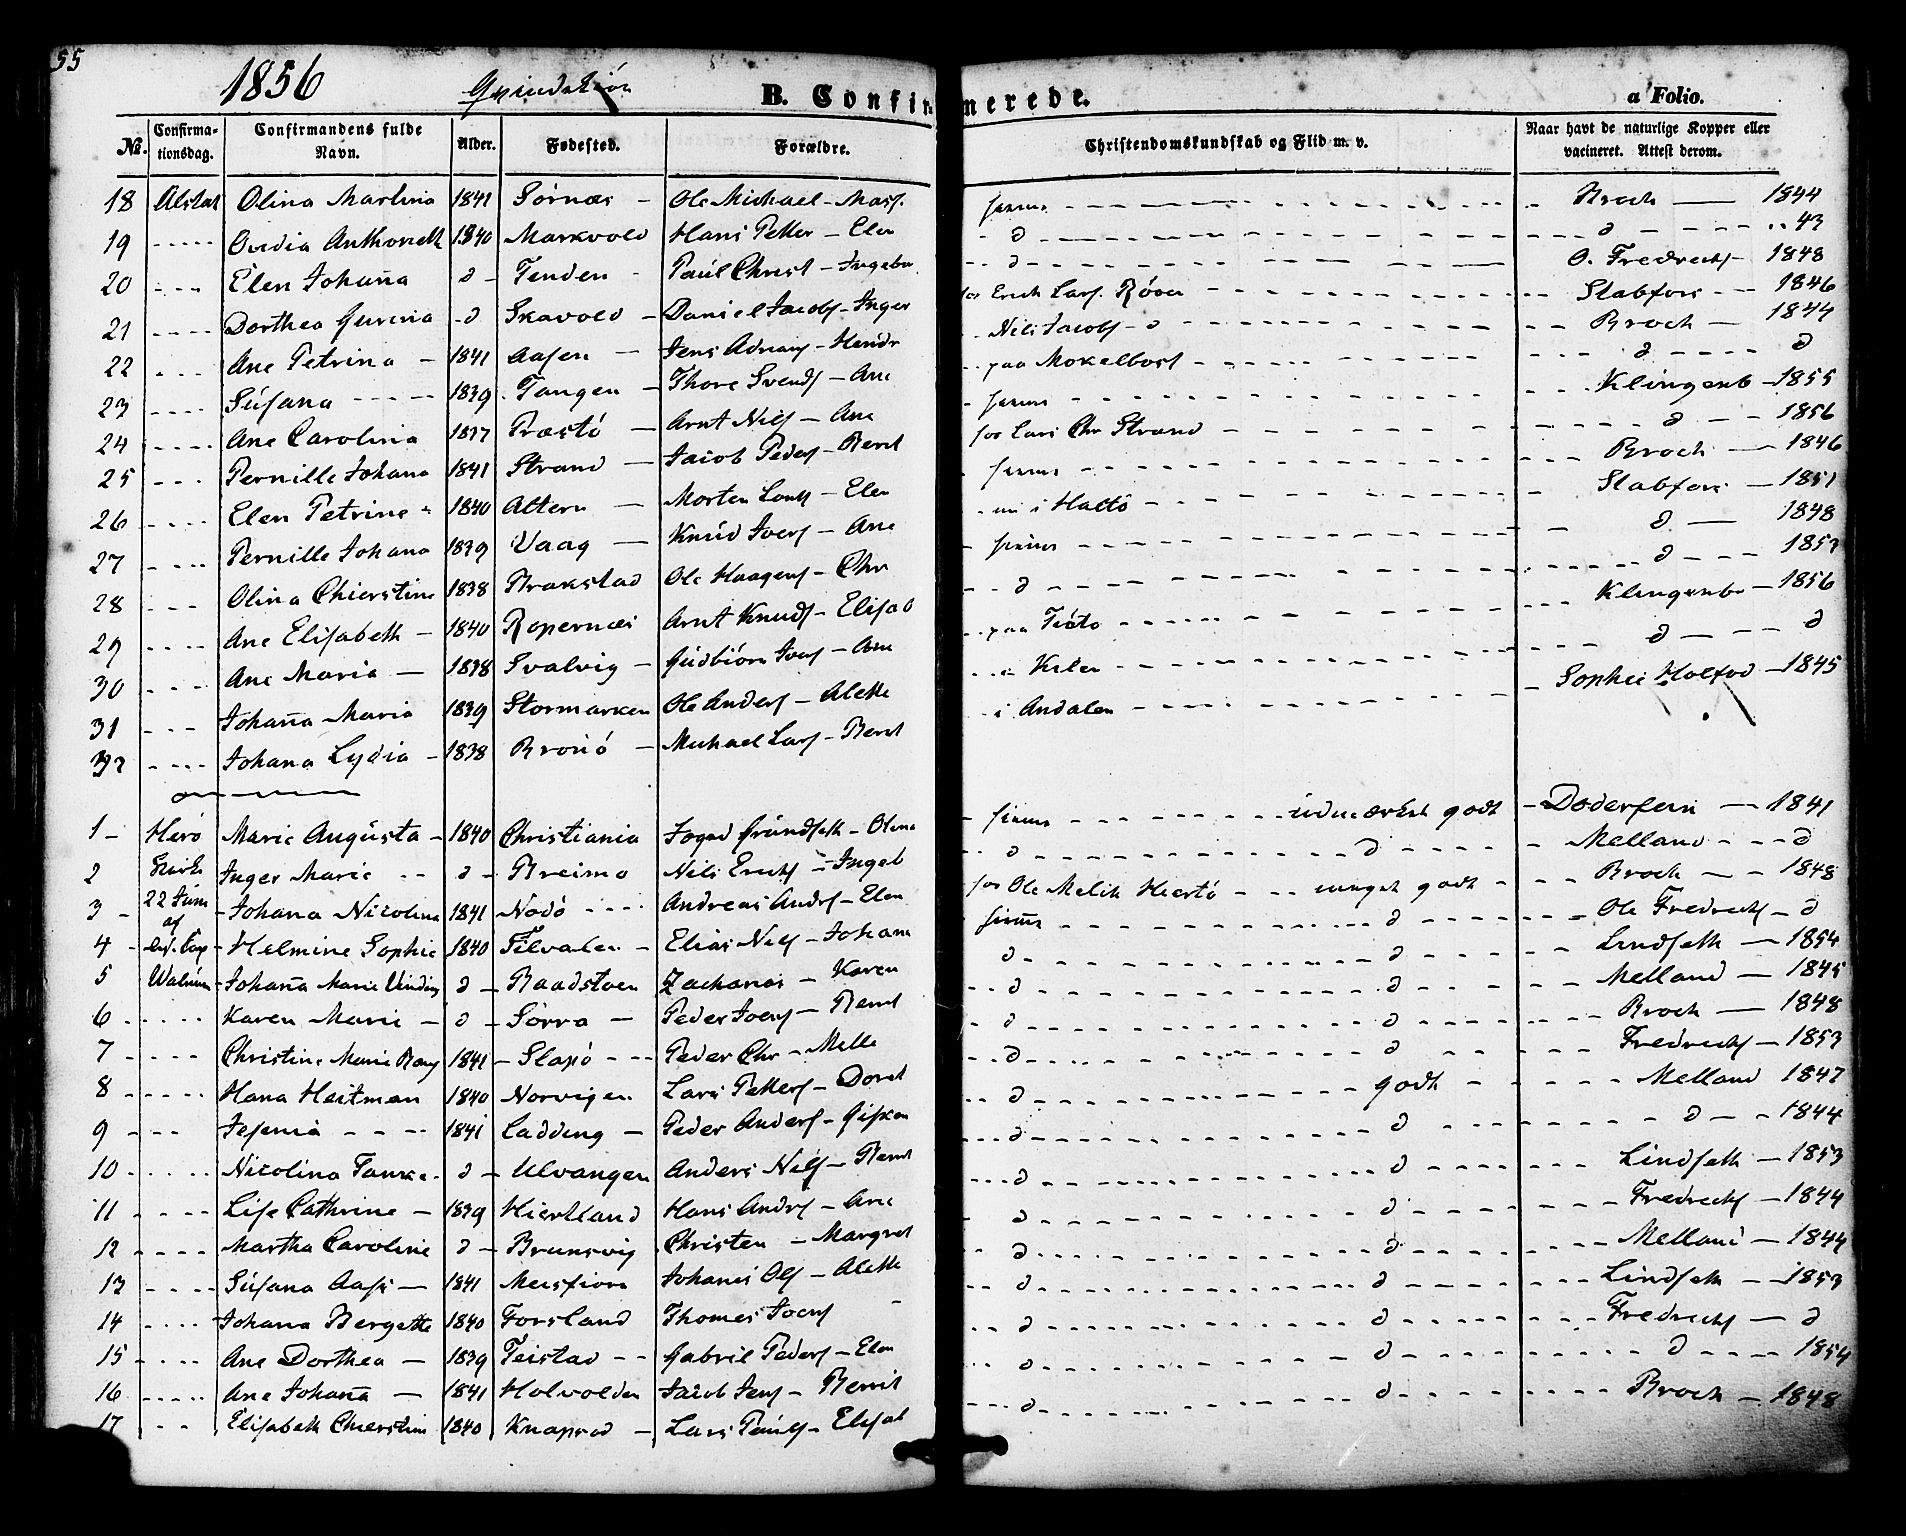 55
1856 Qvindekiön B. Confirmerede. a Folio.
No. Confirmationsdag. Confirmandens fulde Navn. Alder. Fødested. Forældre. Christendomskundskab og Flid m. v. Naar havt de naturlige Kopper eller vacineret. Attest derom.
18 Alstah Olina Marlina 1841 Sörnæs - Ole Michael - Mars. hiemme Broch 1844
19 Ovidia Anthonette 1840 Markvold Hans Petter - Elen d d 43
20 Elen Johana d - Tenden - Paul Christ - Ingebor d O. Fredrechs 1848
21 Dorthea Gurina d Skavold - Daniel Jacobs - Inger hos Erich Lars. Röøen Slabfors 1846
22 Ane Petrina - 1841 Aasen - Jens Adrians - Hendr Nils Jacobs - d Broch 1844
23 Susana 1839 Tangen - Thore Svends - Ane paa Mokelbost d d
24 Ane Carolina 1837 Præstö - Arnt Nils - Ane hiemme Klingenb 1855
25 Pernille Johana 1841 Strand - Jacob Peders - Beret hos Lars Chr Strand d 1856
26 Elen Petrine 1840 Altern - Morten Lons - Elen hiemme Broch 1846
27 Pernille Johana 1839 Vaag - Knud Ivers - Ane i Haltö Slabfors 1851
28 Olina Chierstine 1838 Brakstad Ole Haagens - Chr hiemme d 1848
29 Ane Elisabeth - 1840 Ropernæs Arnt Knuds - Elisab d d 1853
30 Ane Maria - 1838 Svalvig - Gudbiörn Ivers - Ane paa Tiöto Klingenbe 1856
31 Johana Maria 1839 Stormarken Ole Anders - Alette i Kilen d d
32 Johana Lydia - 1838 Bronö - Michael Lars - Beret i Andalen Sophie Holford 1845
1 - Herö Marie Augusta - 1840 Christiania Jogad Grundseth - Olena hiemme udmærket godt Doderlein 1841
2 Kirke Inger Marie d - Breimo Nils Erichs - Ingeb d d Melland d
3 - 22 Juni Johana Nicolina 1841 Nodö Andreas Andrs - Elen hos Ole Melik Hiertö meget godt Broch 1848
af
4 - Helmine Sophie 1840 Tilvalen - Elias Nils - Johana hiemme d Ole Fredrechs d
5 Walnum Johana Marie Vinding d - Baadstoen Zacharias - Karen d d Lindseth 1854
6 Karen Marie - d - Sörra - Peder Joens - Beret d d Melland 1845
7 Christine Marie Bang 1841 - Slapö Peder Chr - Melle d d Broch 1848
8 Hana Heitman 1840 Norvigen Lars Petters - Doret d d Fredrechs 1853
9 Jesenia 1841 Ladding - Peder Anders - Gisken d godt Melland 1847
10 Nicolina Tanke d - Ulvangen Anders Nils - Beret d d d 1844
11 Lise Cathrine - 1839 Hiertland Hans Andrs - Ane d d Lindseth 1853
12 Martha Caroline d - Brunsvig Christen - Margret d d Fredrechs 1844
13 Susana Aase - 1841 Meisfiorn Johanes Ols - Alette d d Melland 1844
14 Johana Bergette 1840 Forsland Thomes Joens d d Lindseth 1853
15 Ane Dorthea - 1839 Teistad Gabriel Peders - Elen d d Fredrechs d
16 Ane Johana - 1841 Holvolden Jacob Jens - Berrit d d d 1854
17 Elisabeth Chierstine 1840 Knaprod - Lars Pauls - Elisab d d Broch 1848